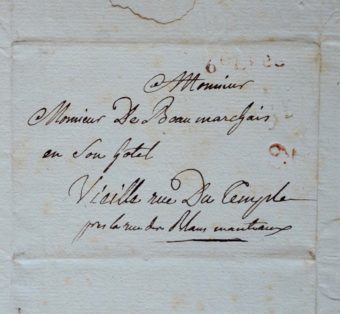 Monsieur
Monsieur De Beaumarchais
en Son hotel
Vieille rue Du Temple
près la rue des Blans manteaux